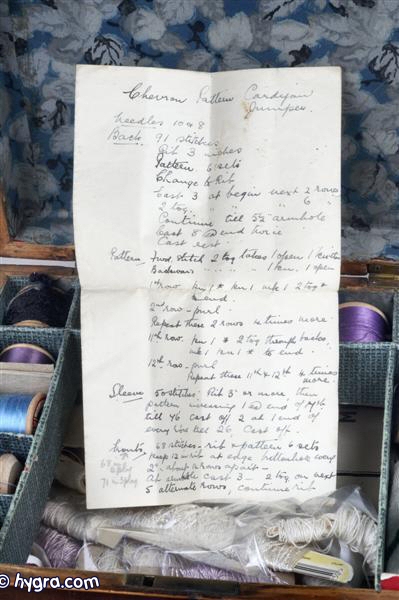 Chevron Pattern Cardigan
Jumper
Needles 10 & 8
Back. 91 stitches
Rib 3 inches
Pattern 6 sets
Change to Rib
Cast 3 at begin next 2 rows
2 tog " " " 6 "
Continue till 5½ armhole
Cast 8 @ end twice
Cast rest
Pattern two stitch 2 tog takes 1 open 1 knit
Backwards " " 1 kn. 1 open
1st row. kn 1 * kn 1 wk 1 2 tog *
end.
2nd row - purl.
Repeat these 2 rows 4 times more.
11th row. kn 1 * 2 tog through backs,
wk 1 kn 1 * to end.
12th row - purl
Repeat these 11th & 12th 4 times
more.
Sleeve 50 stitches. Rib 3" or more, then
pattern increasing 1 @ end of
till 76 cast off 2 at end of
every row till 26. Cast off.
fronts 68 stitches - rib & pattern 6 sets
Keep 12 in rib at edge buttonhole every
2" about rows apart -
At armhole cast 3 - 2 tog on next
5 alternate rows, continue rib
68 in
4 ply
71 in 3 ply
© hygra.com